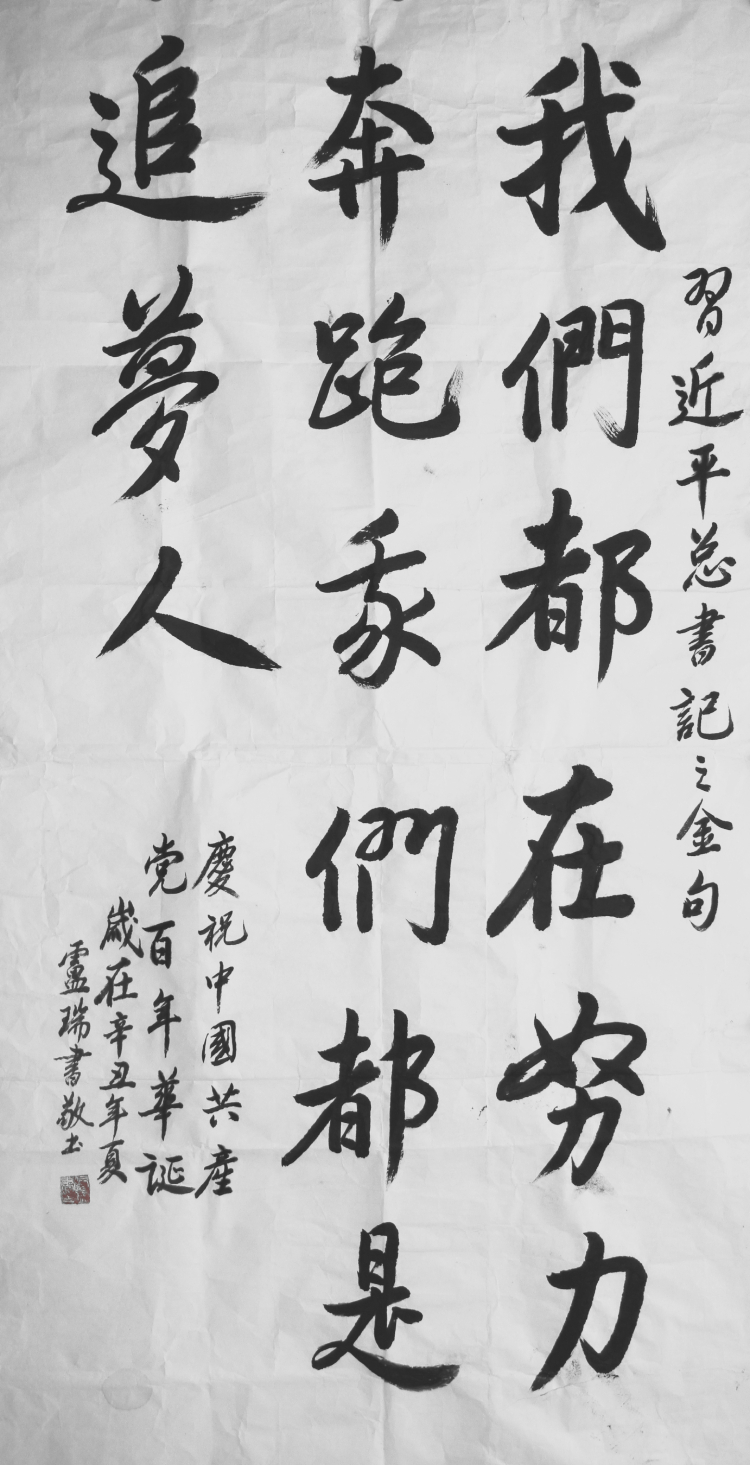 習近平总書記之金句
我們都在努力
奔跑我們都是
追夢人
慶祝中國共產
党百年華誕
歲在辛丑年夏
盧瑞書敬书